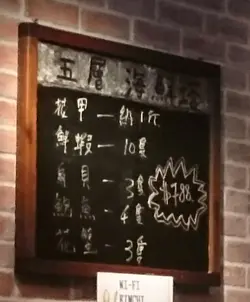 五層海鮮塔
花甲 — 約1斤
鮮蝦 — 10隻
貝 — 3隻
鮑魚 — 4隻
花蟹 — 3隻
$788
WI-FI
KIMCHI